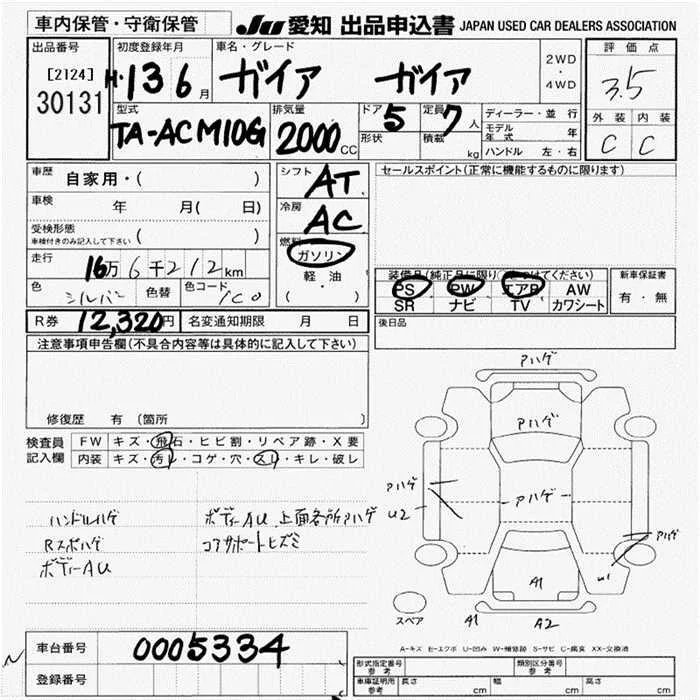 車内保管・守衛保管
JU 愛知 出品申込書 JAPAN USED CAR DEALERS ASSOCIATION
出品番号
[2124]
30131
初度登録年月
H・13 6 月
車名・グレード
ガイア ガイア
2WD
・
4WD
評価点
3.5
外装 内装
C C
型式
TA-ACM10G
排気量
2000 CC
ドア 5
形状
定員 7 人
積載 kg
ディーラー・並行
モデル年式 年
ハンドル 左・右
車歴 自家用・( )
車検 年 月( 日)
受検形態
車検付きのみ記入して下さい ( )
走行 16万6千212km
色 シルバー 色替 色コード 1C0
シフト AT
冷房 AC
燃料
ガソリン
軽・油
( ・ )
セールスポイント(正常に機能するものに限ります)
装備品(純正品に限り○をつけてください)
PS PW エアB AW
SR ナビ TV カワシート
新車保証書
有・無
R券 12,320円 名変通知期限 月 日
後日品
注意事項申告欄(不具合内容等は具体的に記入して下さい)
修復歴 有 (箇所 )
検査員記入欄
FW キズ・飛石・ヒビ割・リペア跡・X要
内装 キズ・汚レ・コゲ・穴・スレ・キレ・破レ
ハンドルハゲ
Rスポハゲ
ボディーAU
ボディーAU 上面各所アハゲ
コアサポートヒズミ
アハゲ
アハゲ
アハゲ
アハゲ
U2
アハゲ
U1
A1
A1
A2
スペア
A-キズ E-エクボ U-凹み W-補修跡 S-サビ C-腐食 XX-交換済
車台番号 0005334
登録番号
形式指定番号 参考
類別区分番号 参考
車庫証明用 参考
長さ cm 幅 cm 高さ cm